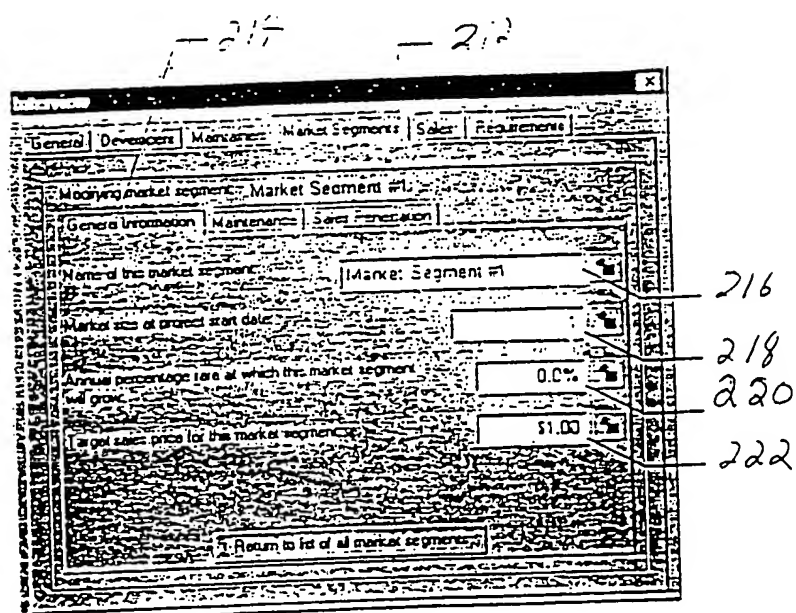 214 212
Interview
General Development Maintenance Market Segments Sales Requirements
Modifying market segment: Market Segment #1
General Information Maintenance Sales Penetration
Name of this market segment: Market Segment #1
216
Market size at project start date:
218
Annual percentage rate at which this market segment
will grow: 0.0%
220
Target sales price for this market segment: $1.00
222
Return to list of all market segments